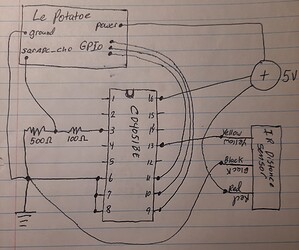 Le Potatoe
power
ground
GPIO
SARADC_CH0
+
5V
500Ω
100Ω
CD4051BE
1
2
3
4
5
6
7
8
16
15
14
13
12
11
10
9
Yellow
Yellow
Black
Black
Red
Red
IR Distance
Sensor